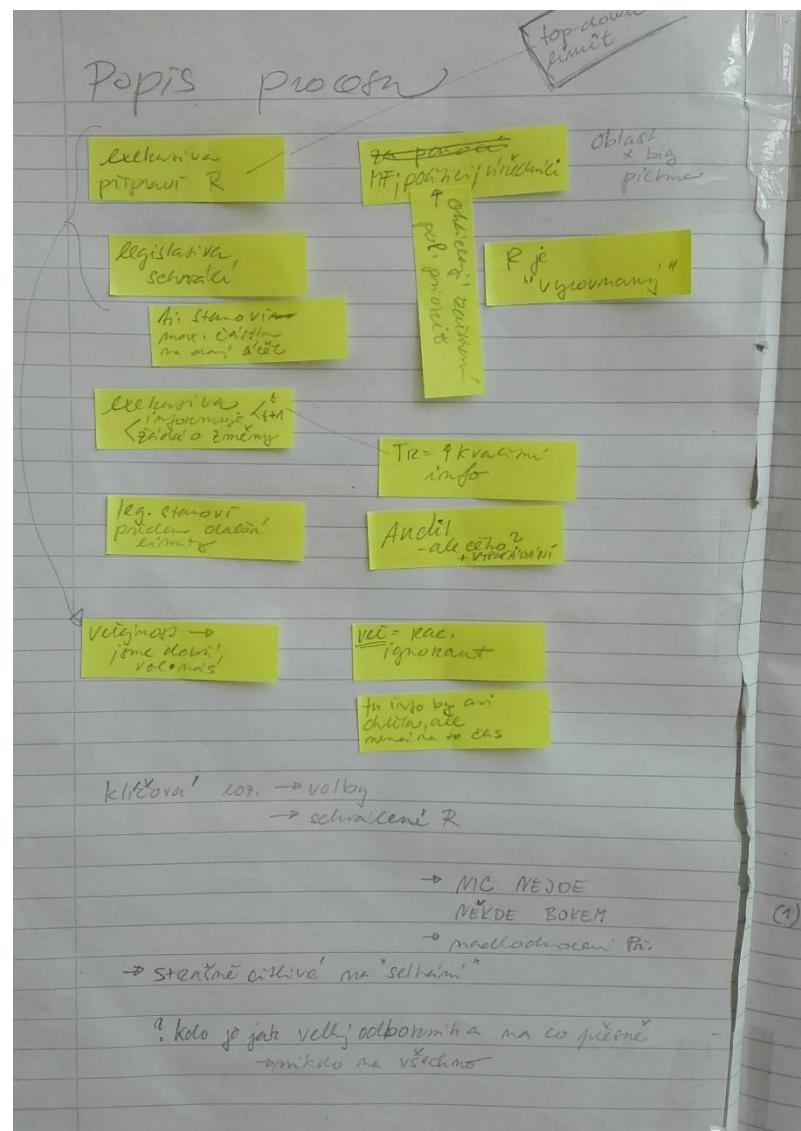 top-down
limit
Popis procesu
exekutiva
připraví R
za pomoci
MF; politici; úředníci
oblast
x big
picture
legislativa
schválí
pol. priorit
R je
"vyrovnaný"
tj. stanoví
max. částku
na daný účel
exekutiva t
informuje t+1
žádá o změny
TR = ↑ kvalitní
info
leg. stanoví
předem další
limity
Audit
- ale čeho?
+ VYPOŘÁDÁNÍ
veřejnost →
jsme dobří,
vol
veř = rac.
ignorant
tu info by asi
chtěla, ale
nemá na to čas
klíčová roz. → volby
→ schválení R
→ NIC NEJDE
NĚKDE BOKEM
(1)
→ nadhodnocení Př.
→ strašně citlivé na "selhání"
? kdo je jak velký odborník a na co přesně
nikdo na všechno